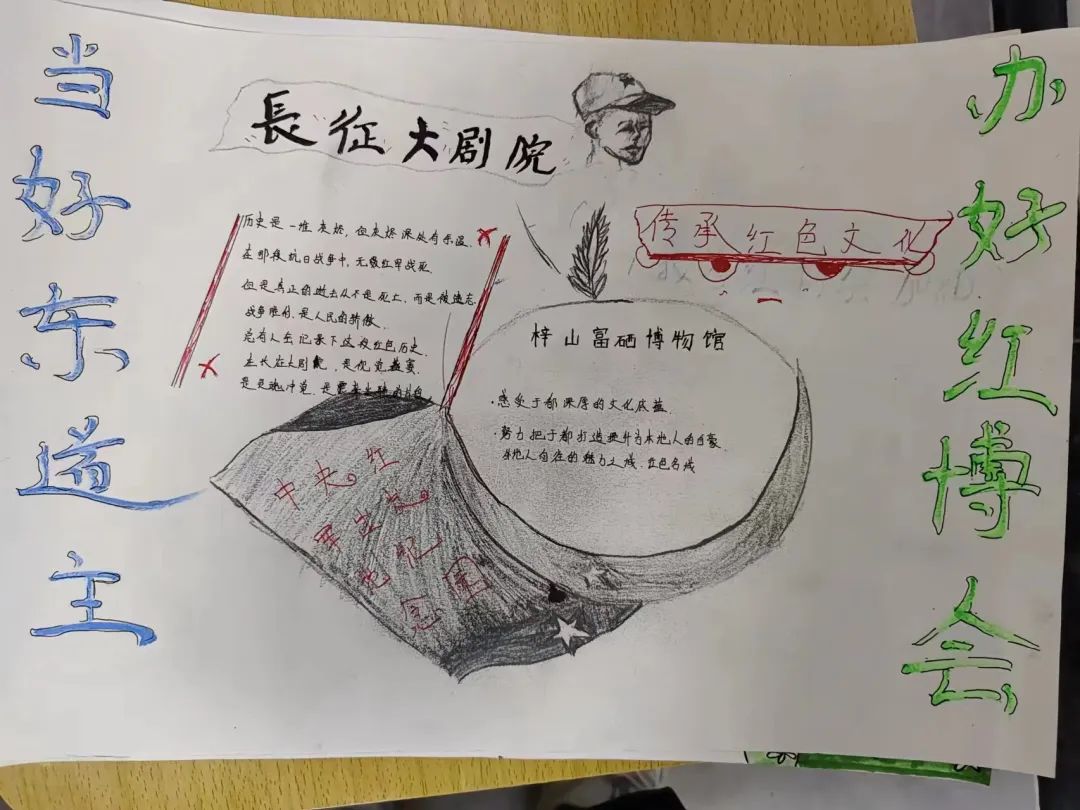 当好东道主
長征大剧院
历史是一堆灰烬，但灰烬深处有余温.
在那段抗日战争中，无数红军战死.
但是真正的逝去从不是死亡，而是被遗忘.
战争胜利，是人民的骄傲.
总有人会记录下这段红色历史.
在长征大剧院，是视觉盛宴.
是灵魂冲突，是
传承红色文化
梓山富硒博物馆
·感受于都深厚的文化底蕴.
·努力把于都打造提升为本地人的自豪.
外地人向往的魅力之城.红色名城
中央红
军出发
地纪
念园
办好红博会